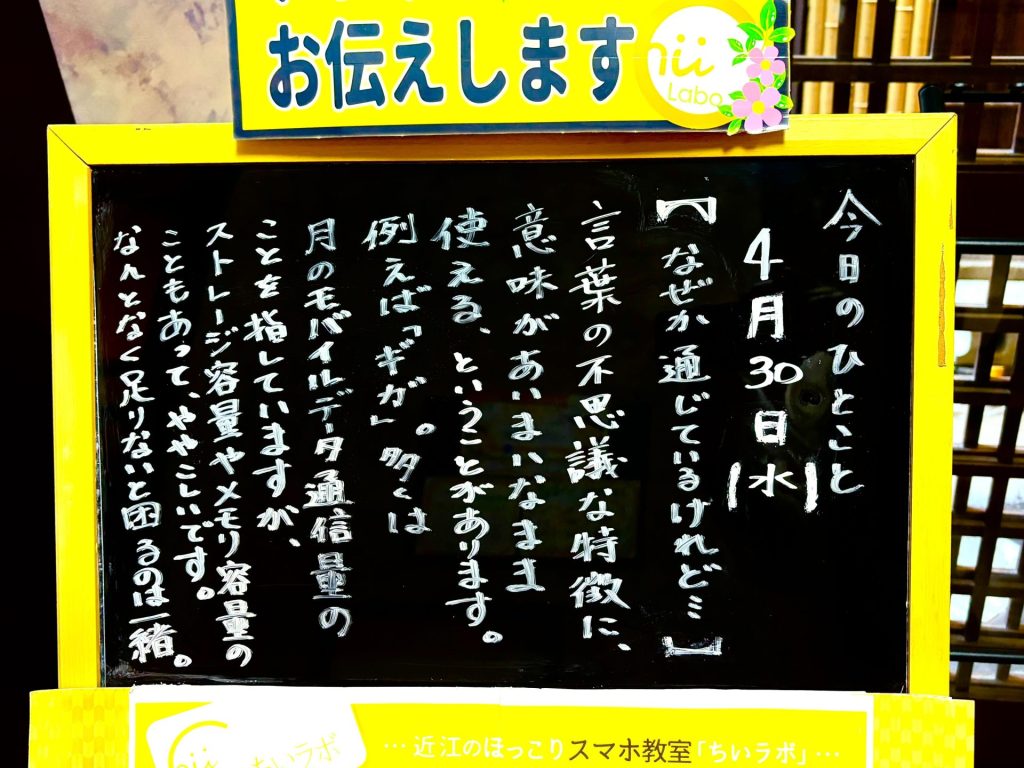 お伝えします
Labo
今日のひとこと
4月30日(水)
【なぜか通じているけれど…】
言葉の不思議な特徴に、
意味があいまいなまま
使える、ということがあります。
例えば「ギガ」。多くは
月のモバイルデータ通信量の
ことを指していますが、
ストレージ容量やメモリ容量の
こともあって、ややこしいです。
なんとなく足りないと困るのは一緒。
ちいラボ
…近江のほっこりスマホ教室「ちいラボ」…